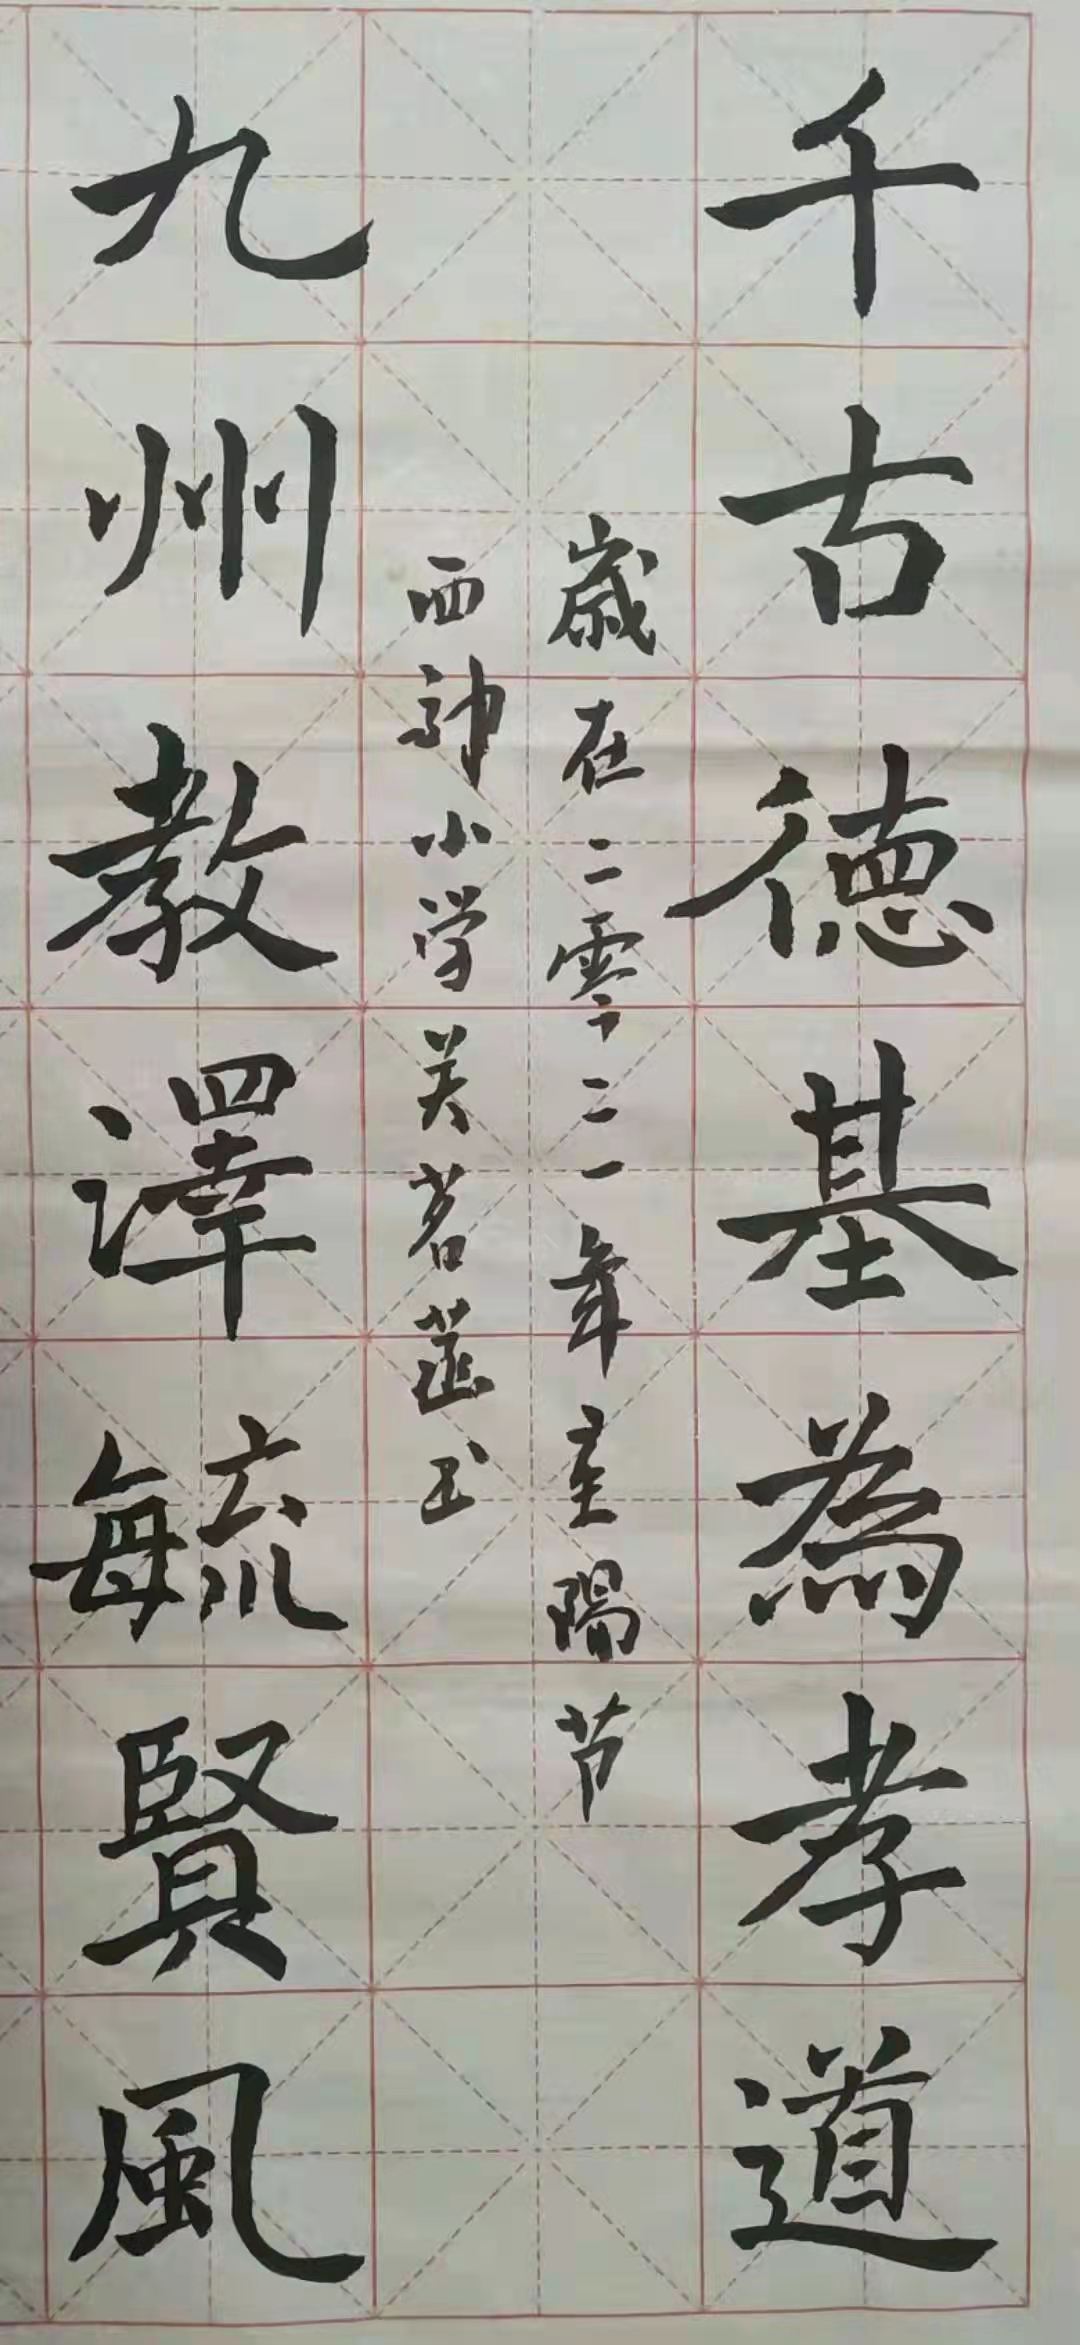 千古德基為孝道
歲在二零二一年重陽节
西神小学茗菡书
九州教澤毓賢風